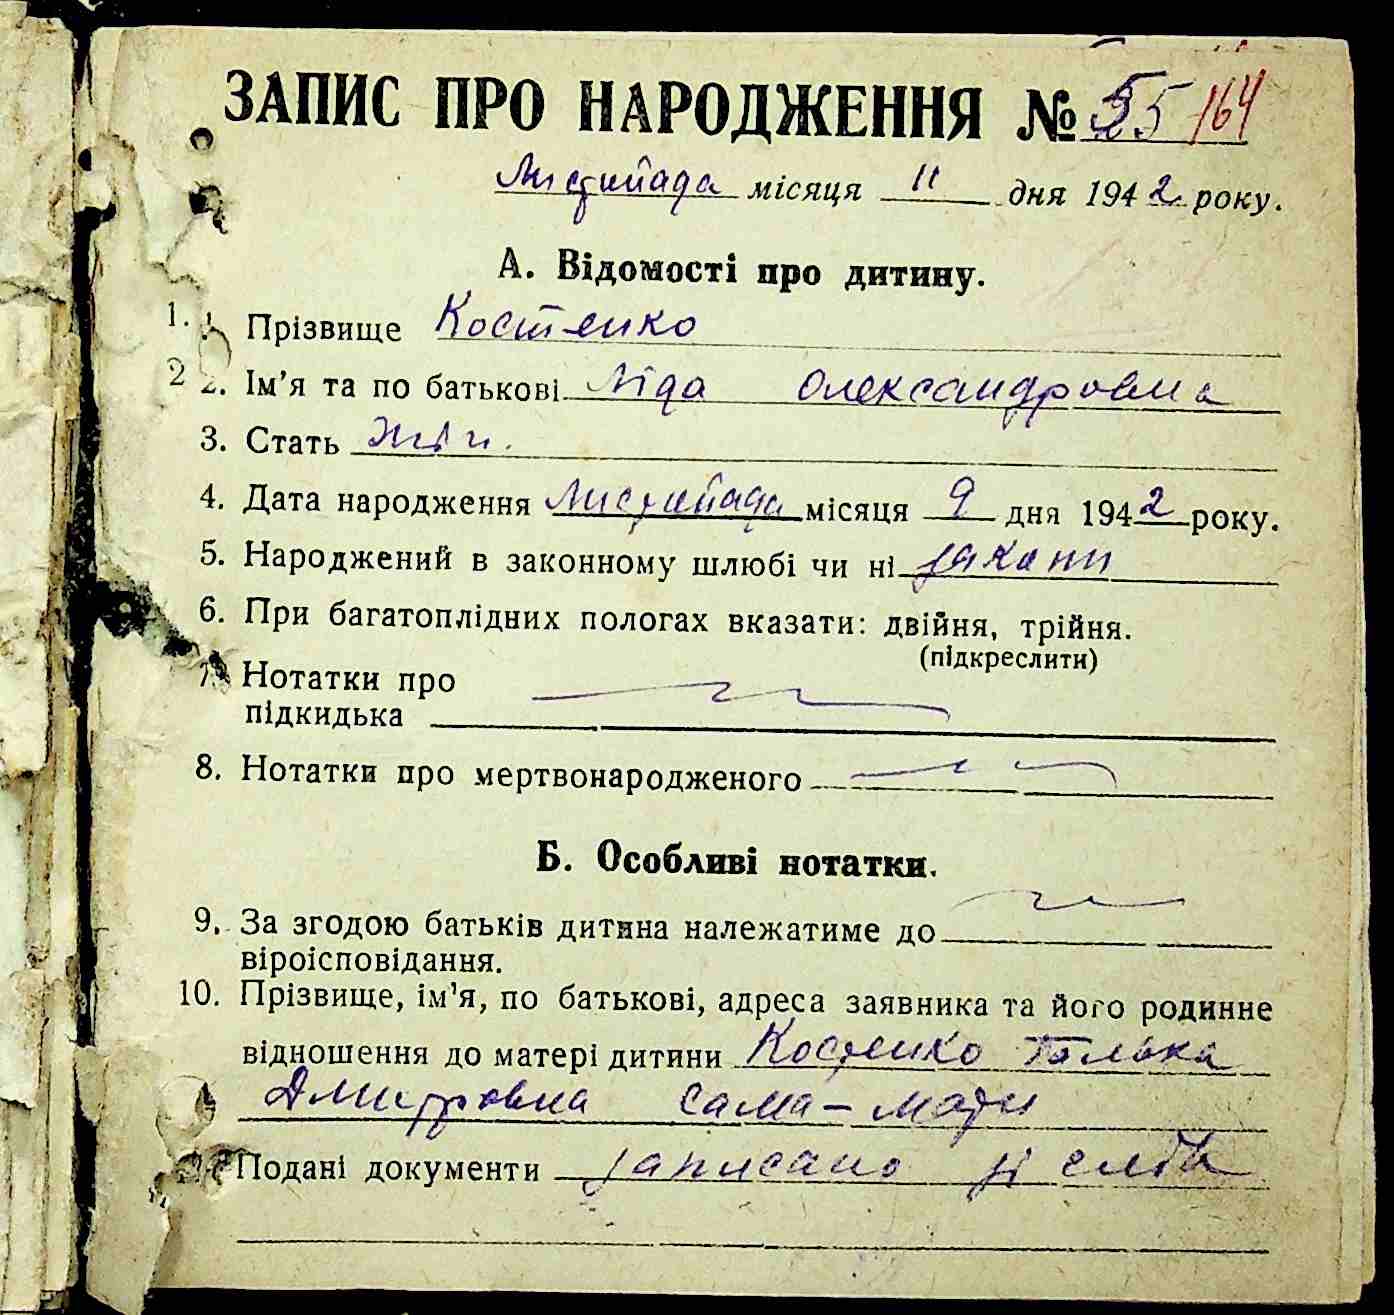 ЗАПИС ПРО НАРОДЖЕННЯ № 55 164
Листопада місяця 11 дня 1942 року.
А. Відомості про дитину.
1. Прізвище Костенко
2 2. Ім'я та по батькові Ліда Олександровна
3. Стать жін.
4. Дата народження Листопада місяця 9 дня 1942 року.
5. Народжений в законному шлюбі чи ні закони
6. При багатоплідних пологах вказати: двійня, трійня.
(підкреслити)
7. Нотатки про
підкидька
8. Нотатки про мертвонародженого
Б. Особливі нотатки.
9. За згодою батьків дитина належатиме до
віроісповідання.
10. Прізвище, ім'я, по батькові, адреса заявника та його родинне
відношення до матері дитини Костенко
Дмитровна сама - мати
Подані документи записано зі слів